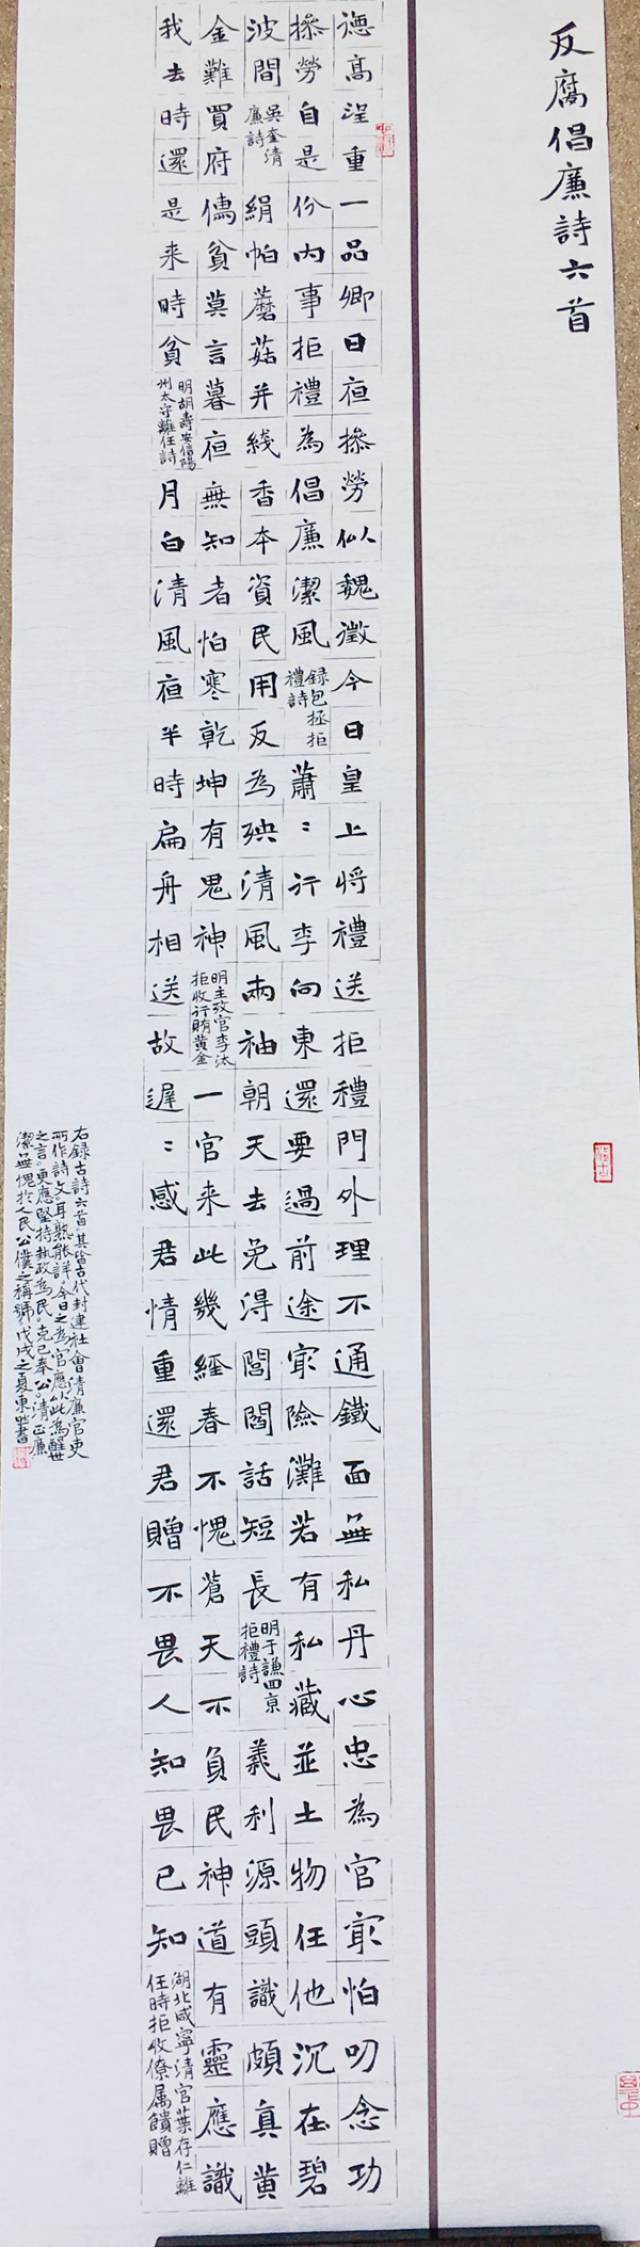 反腐倡廉詩六首
德高浧重一品卿日夜操勞似魏徵今日皇上將禮送拒禮門外理不通鐵面無私丹心忠為官最怕叨念功
操勞自是份內事拒禮為倡廉潔風錄包拯拒禮詩蕭〻行李向東還要過前途最險灘若有私藏並土物任他沉在碧
波間吳奎清廉詩絹帕蘑菇并綫香本資民用反為殃清風兩袖朝天去免得閭閻話短長明于謙四京拒禮詩義利源頭識頗真黃
金難買府儒貧莫言暮夜無知者怕寒乾坤有鬼神明主政官李汰拒收行賄黃金一官来此幾經春不愧蒼天不負民神道有靈應識
我去時還是来時貧明胡壽安信陽州太守離任詩月白清風夜半時扁舟相送故遲〻感君情重還君贈不畏人知畏已知湖北咸寧清官葉存仁離任時拒收僚属饋贈
右錄古詩六首其皆古代封建社會清廉官吏
所作詩文耳熟能詳今日之為官應以此為醒世
之言更應堅持執政為民克己奉公清正廉
潔無愧於人民公僕之稱號戊戌之夏東書